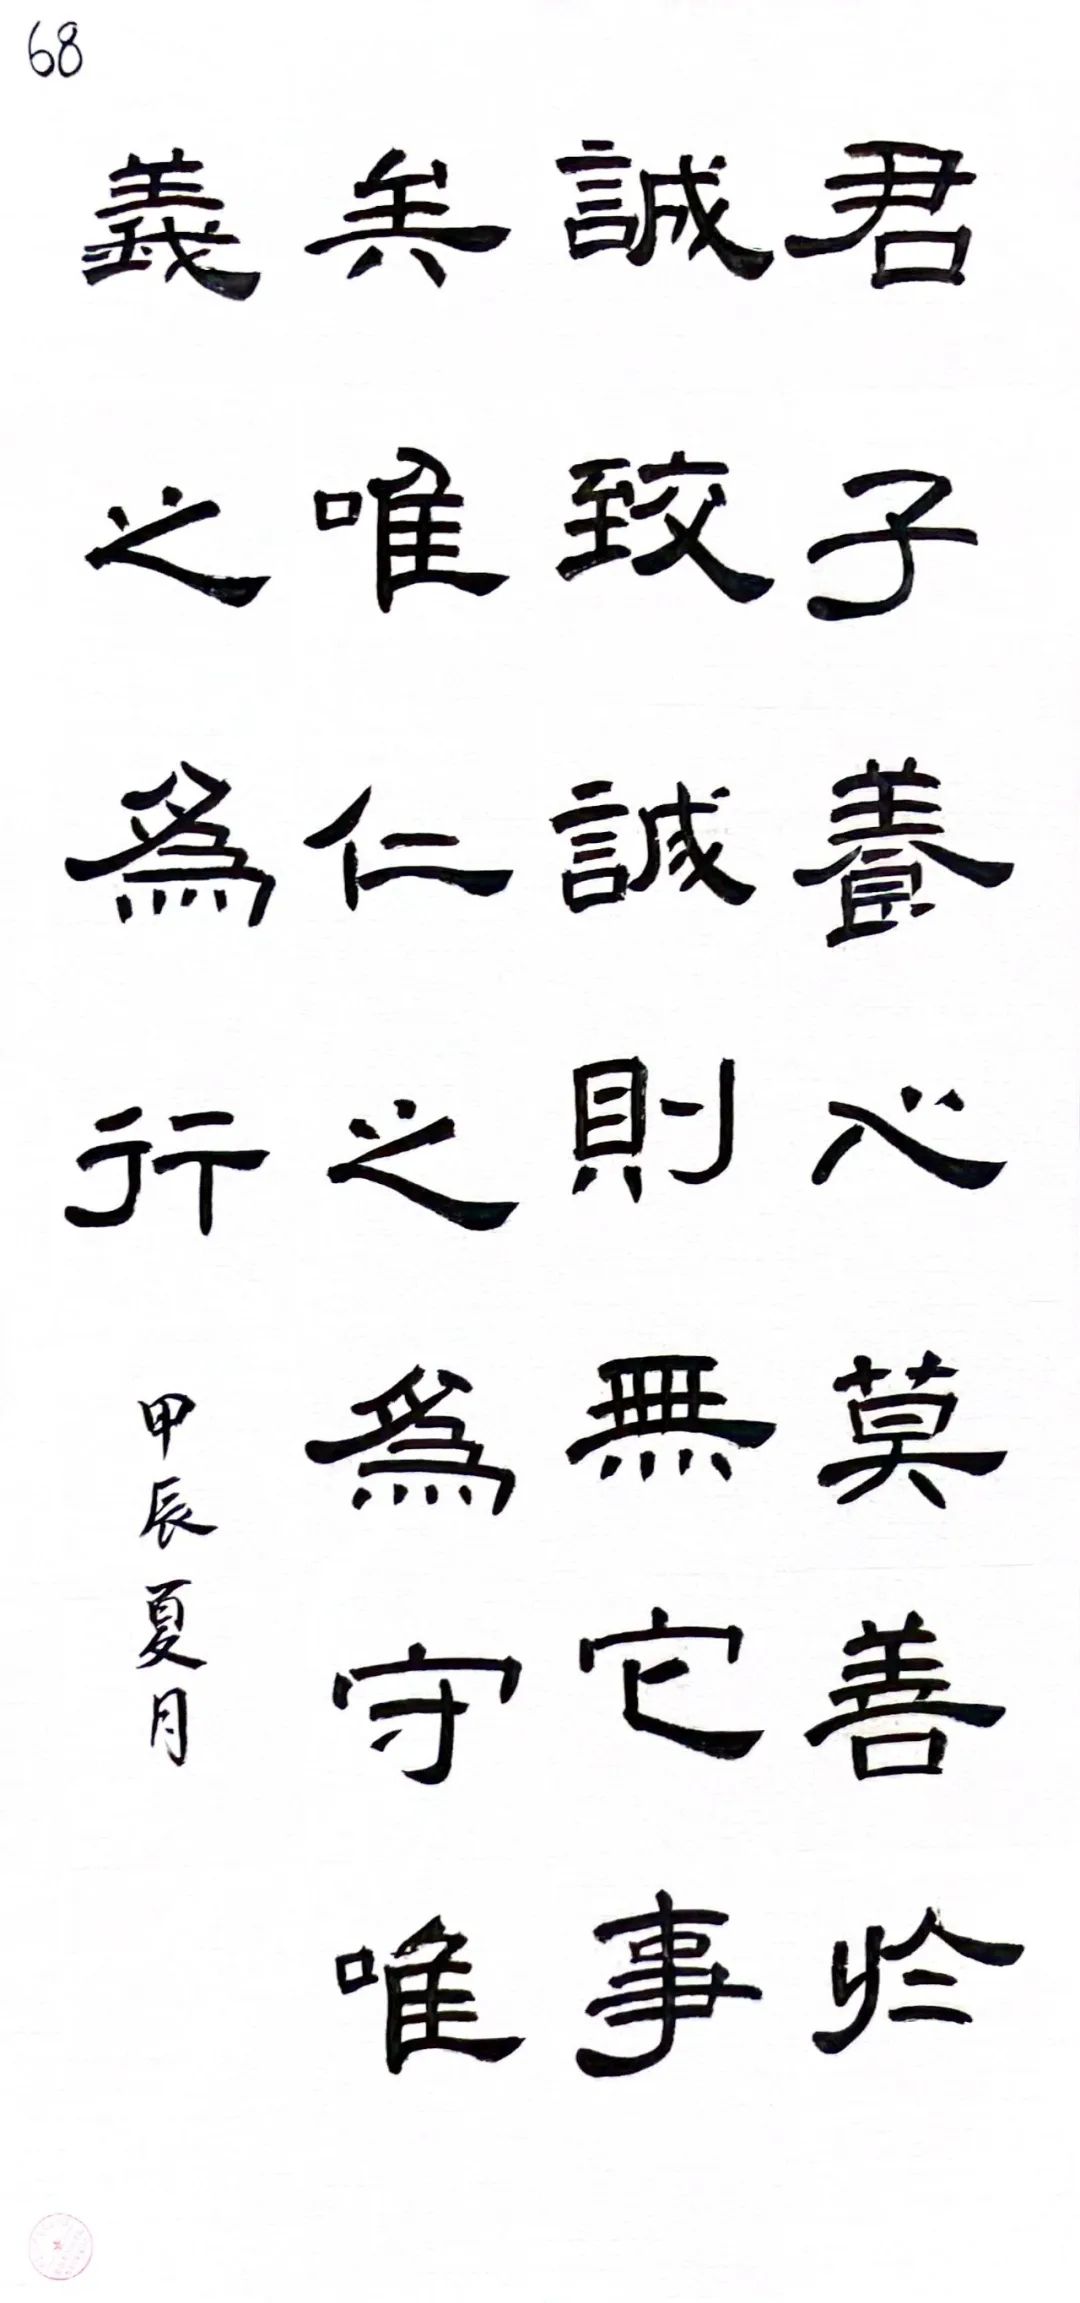 68
君子養心莫善於
誠致誠則無它事
矣唯仁之為守唯
義之為行
甲辰夏月